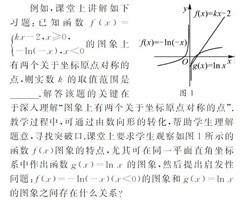 例如,课堂上讲解如下
习题:已知函数 f(x)=
{kx-2,x≥0,
-ln(-x),x<0 的图象上
有两个关于坐标原点对称的
点,则实数 k 的取值范围是
______.解答该题的关键在
于深入理解“图象上有两个关于坐标原点对称的点”.
教学过程中,可通过由数向形的转化,帮助学生理解
题意,寻找突破口.课堂上要求学生观察如图1所示的
函数 f(x)图象的特点,尤其可在同一平面直角坐标
系中作出函数 g(x)=ln x 的图象,然后提出启发性
问题:f(x)=-ln(-x)(x<0)的图象和 g(x)=ln x
的图象之间存在什么关系?
y
f(x)=kx-2
f(x)=-ln(-x)
O
x
g(x)=ln x
图1